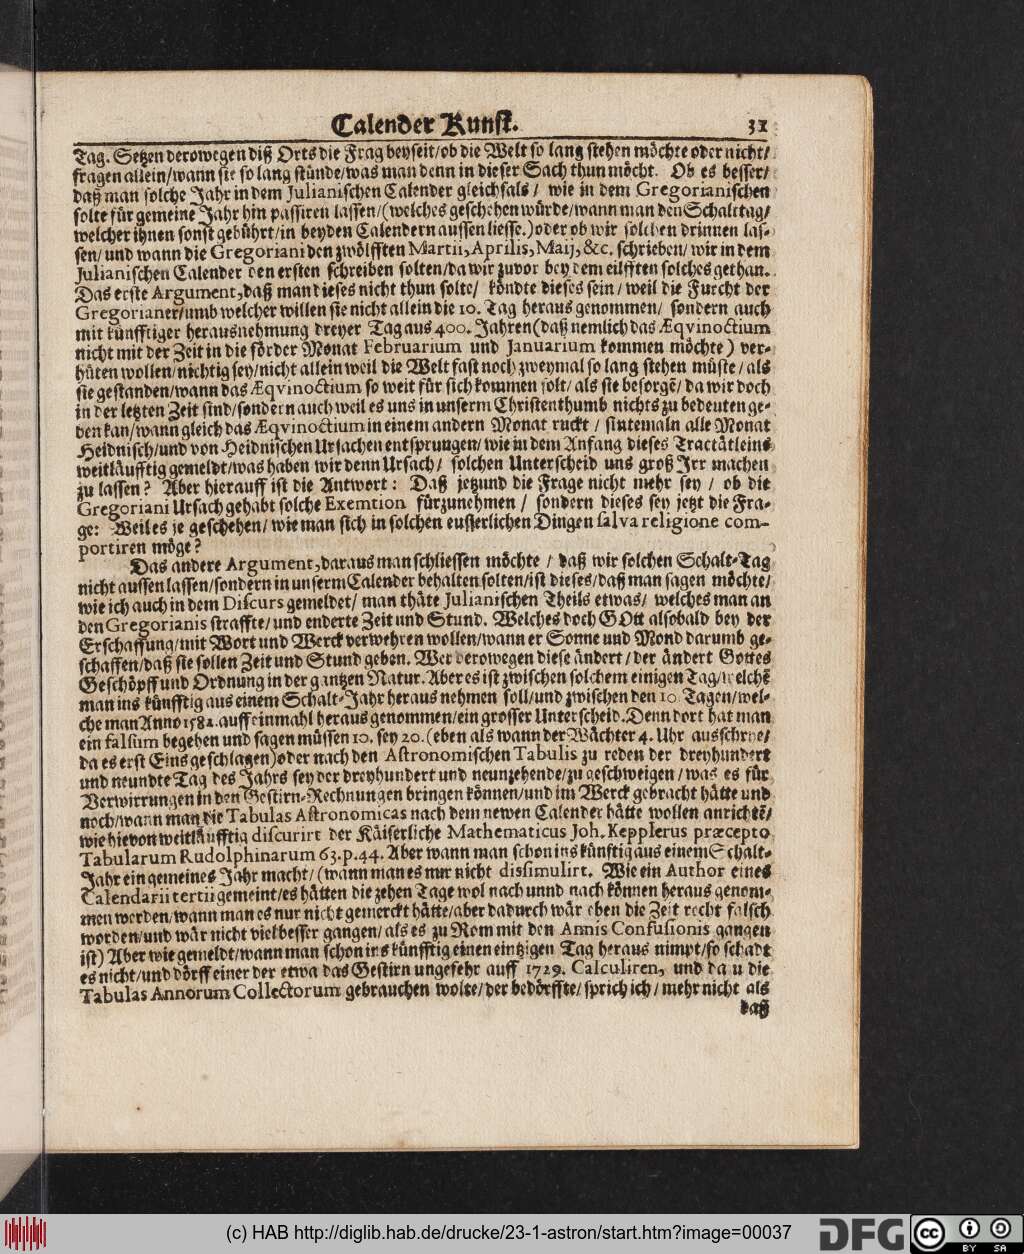 Calender Kunst. 31
Tag. Setzen derowegen diß Orts die Frag beyseit/ob die Welt so lang stehen möchte oder nicht/
fragen allein/wann sie so lang stünde/was man denn in dieser Sach thun möcht. Ob es besser/
daß man solche Jahr in dem Julianischen Calender gleichfals / wie in dem Gregorianischen
solte für gemeine Jahr hin passiren lassen/(welches geschehen würde/wann man den Schalttag/
welcher ihnen sonst gebührt/in beyden Calendern aussen liesse.)oder ob wir solchen drinnen las-
sen/und wann die Gregoriani den zwölfften Martii, Aprilis, Maij, &c. schrieben/wir in dem
Julianischen Calender den ersten schreiben solten/da wir zuvor bey dem eilfften solches gethan.
Das erste Argument, daß man dieses nicht thun solte/ köndte dieses sein/ weil die Furcht der
Gregorianer/umb welcher willen sie nicht allein die 10. Tag heraus genommen/ sondern auch
mit künfftiger herausnehmung dreyer Tag aus 400. Jahren(daß nemlich das Æqvinoctium
nicht mit der Zeit in die förder Monat Februarium und Januarium kommen möchte) ver-
hüten wollen/nichtig sey/nicht allein weil die Welt fast noch zweymal so lang stehen müste/als
sie gestanden/wann das Æqvinoctium so weit für sich kommen solt/als sie besorgē/da wir doch
in der letzten Zeit sind/sondern auch weil es uns in unserm Christenthumb nichts zu bedeuten ge-
ben kan/wann gleich das Æqvinoctium in einem andern Monat ruckt/ sintemaln alle Monat
Heidnisch/und von Heidnischen Ursachen entsprungen/wie in dem Anfang dieses Tractätleins
weitläufftig gemeldt/was haben wir denn Ursach/ solchen Unterscheid uns groß Irr machen
zu lassen? Aber hierauff ist die Antwort: Daß jetzund die Frage nicht mehr sey / ob die
Gregoriani Ursach gehabt solche Exemtion fürzunehmen / sondern dieses sey jetzt die Fra-
ge: Weil es je geschehen/wie man sich in solchen eusserlichen Dingen salva religione com-
portiren möge?
Das andere Argument, daraus man schliessen möchte / daß wir solchen Schalt-Tag
nicht aussen lassen/sondern in unserm Calender behalten solten/ist dieses/daß man sagen möchte/
wie ich auch in dem Discurs gemeldet/ man thäte Julianischen Theils etwas/ welches man an
den Gregorianis straffte/und enderte Zeit und Stund. Welches doch GOtt alsobald bey der
Erschaffung/mit Wort und Werck verwehren wollen/wann er Sonne und Mond darumb ge-
schaffen/daß sie sollen Zeit und Stund geben. Wer derowegen diese ändert/der ändert Gottes
Geschöpff und Ordnung in der gantzen Natur. Aber es ist zwischen solchem einigen Tag/welchē
man ins künfftig aus einem Schalt-Jahr heraus nehmen soll/und zwischen den 10. Tagen/wel-
che man Anno 1582. auff einmahl heraus genommen/ein grosser Unterscheid. Denn dort hat man
ein falsum begehen und sagen müssen 10. sey 20.(eben als wann der Wächter 4. Uhr ausschrye/
da es erst Eins geschlagen)oder nach den Astronomischen Tabulis zu reden der dreyhundert
und neundte Tag des Jahrs sey der dreyhundert und neunzehende/zu geschweigen/was es für
Verwirrungen in den Gestirn-Rechnungen bringen können/und im Werck gebracht hätte und
noch/wann man die Tabulas Astronomicas nach dem newen Calender hätte wollen anrichtē/
wie hievon weitläufftig discurirt der Käiserliche Mathematicus Joh. Kepplerus præcepto
Tabularum Rudolphinarum 63. p. 44. Aber wann man schon ins künftig aus einem Schalt-
Jahr ein gemeines Jahr macht/(wann man es nur nicht dissimulirt. Wie ein Author eines
Calendarii tertii gemeint/es hätten die zehen Tage wol nach unnd nach können heraus genom-
men werden/wann man es nur nicht gemerckt hätte/aber dadurch wär eben die Zeit recht falsch
worden/und wär nicht viel besser gangen/als es zu Rom mit den Annis Confusionis gangen
ist) Aber wie gemeldt/wann man schon ins künfftig einen eintzigen Tag heraus nimpt/so schadt
es nicht/und dörff einer der etwa das Gestirn ungefehr auff 1729. Calculiren, und da u die
Tabulas Annorum Collectorum gebrauchen wolte/der bedörffte/sprich ich/mehr nicht als
daß
(c) HAB http://diglib.hab.de/drucke/23-1-astron/start.htm?image=00037
DFG
cc BY SA